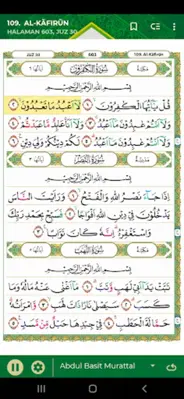 109. AL-KĀFIRŪN
HALAMAN 603, JUZ 30
JUZ 30 603 109. Al-Kāfirūn
سُورَةُ الْكَافِرُونَ
بِسْمِ اللَّهِ الرَّحْمَٰنِ الرَّحِيمِ
قُلْ يَا أَيُّهَا الْكَافِرُونَ ۝١ لَا أَعْبُدُ مَا تَعْبُدُونَ ۝٢
وَلَا أَنْتُمْ عَابِدُونَ مَا أَعْبُدُ ۝٣ وَلَا أَنَا عَابِدٌ مَا عَبَدْتُمْ ۝٤
وَلَا أَنْتُمْ عَابِدُونَ مَا أَعْبُدُ ۝٥ لَكُمْ دِينُكُمْ وَلِيَ دِينِ ۝٦
سُورَةُ النَّصْرِ
بِسْمِ اللَّهِ الرَّحْمَٰنِ الرَّحِيمِ
إِذَا جَاءَ نَصْرُ اللَّهِ وَالْفَتْحُ ۝١ وَرَأَيْتَ النَّاسَ
يَدْخُلُونَ فِي دِينِ اللَّهِ أَفْوَاجًا ۝٢ فَسَبِّحْ بِحَمْدِ رَبِّكَ
وَاسْتَغْفِرْهُ إِنَّهُ كَانَ تَوَّابًا ۝٣
بِسْمِ اللَّهِ الرَّحْمَٰنِ الرَّحِيمِ
تَبَّتْ يَدَا أَبِي لَهَبٍ وَتَبَّ ۝١ مَا أَغْنَىٰ عَنْهُ مَالُهُ وَمَا
كَسَبَ ۝٢ سَيَصْلَىٰ نَارًا ذَاتَ لَهَبٍ ۝٣ وَامْرَأَتُهُ
حَمَّالَةَ الْحَطَبِ ۝٤ فِي جِيدِهَا حَبْلٌ مِنْ مَسَدٍ ۝٥
Abdul Basit Murattal